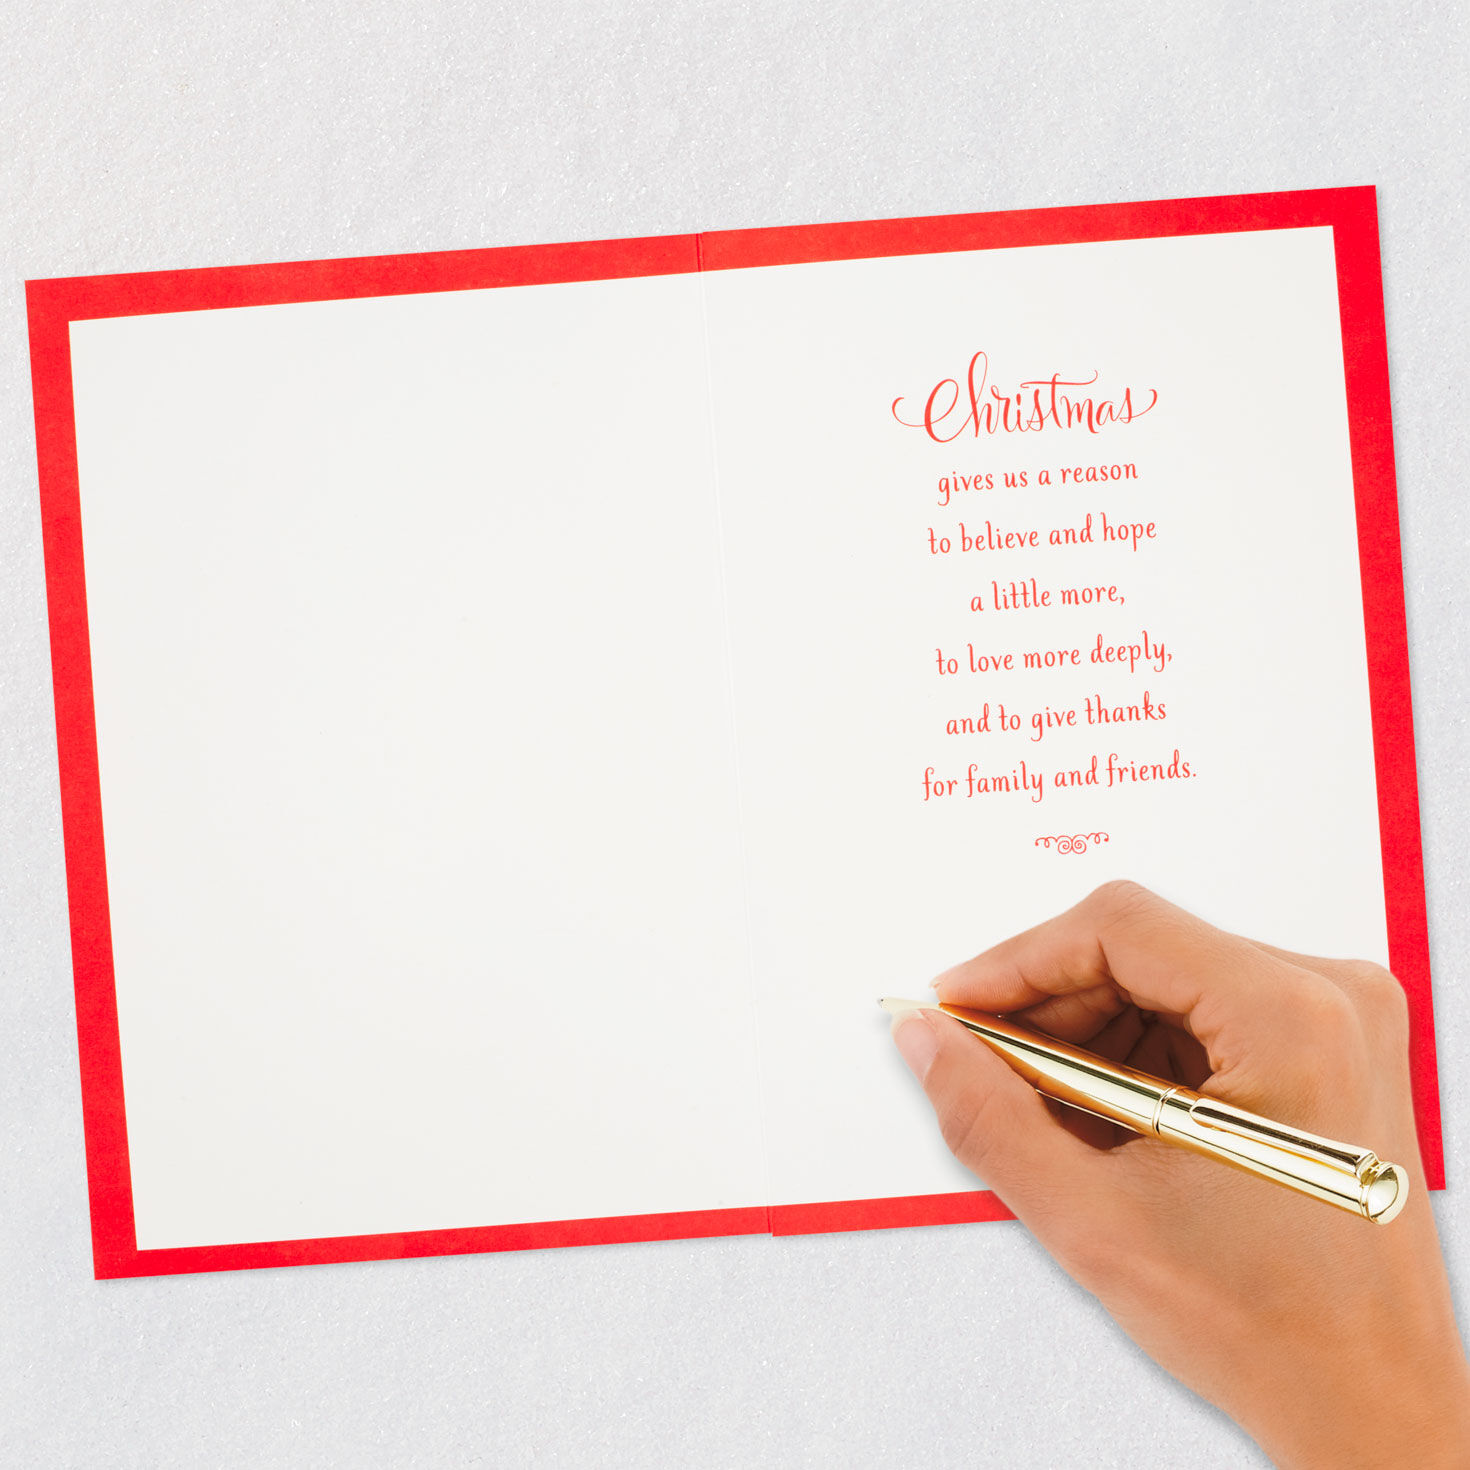 Christmas
gives us a reason
to believe and hope
a little more,
to love more deeply,
and to give thanks
for family and friends.